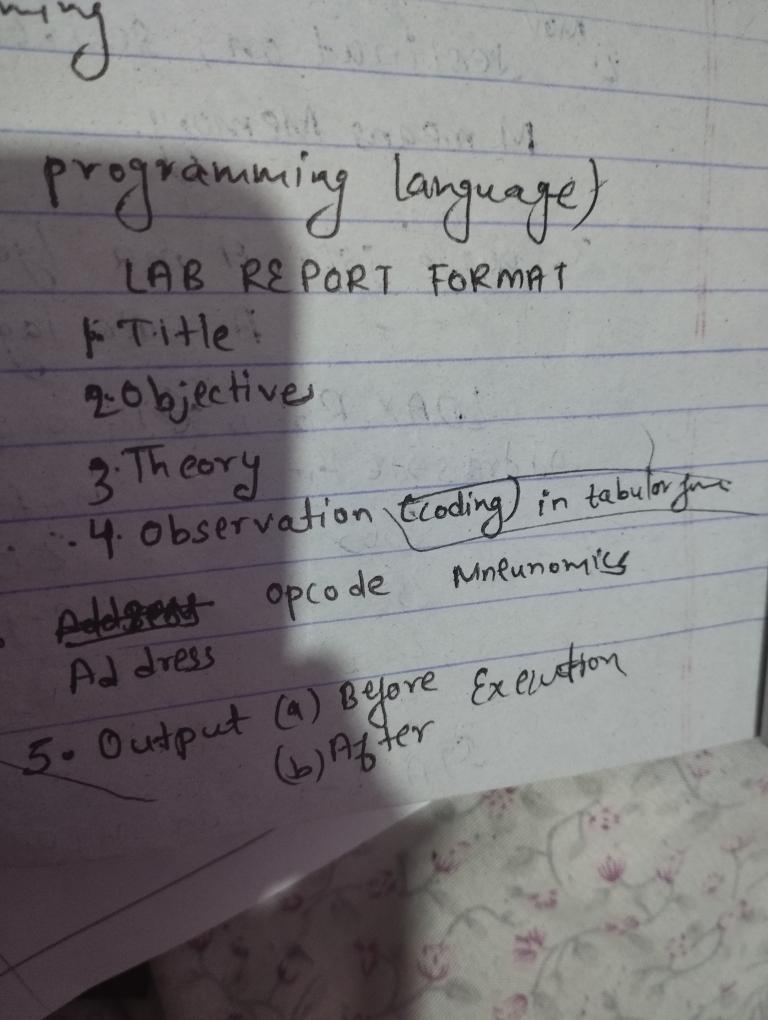 ming
programming language)
LAB REPORT FORMAT
1. Title:
2. Objective
3. Theory
4. Observation (coding) in tabular
opcode Mneunomics
Address
5. Output (a) Before Execution
(b) After